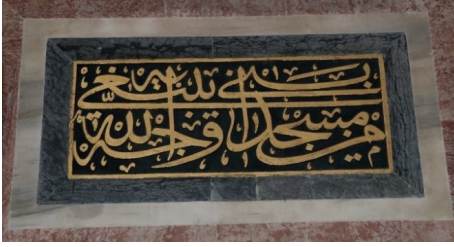 من بنى مسجدا يبتغي به وجه الله